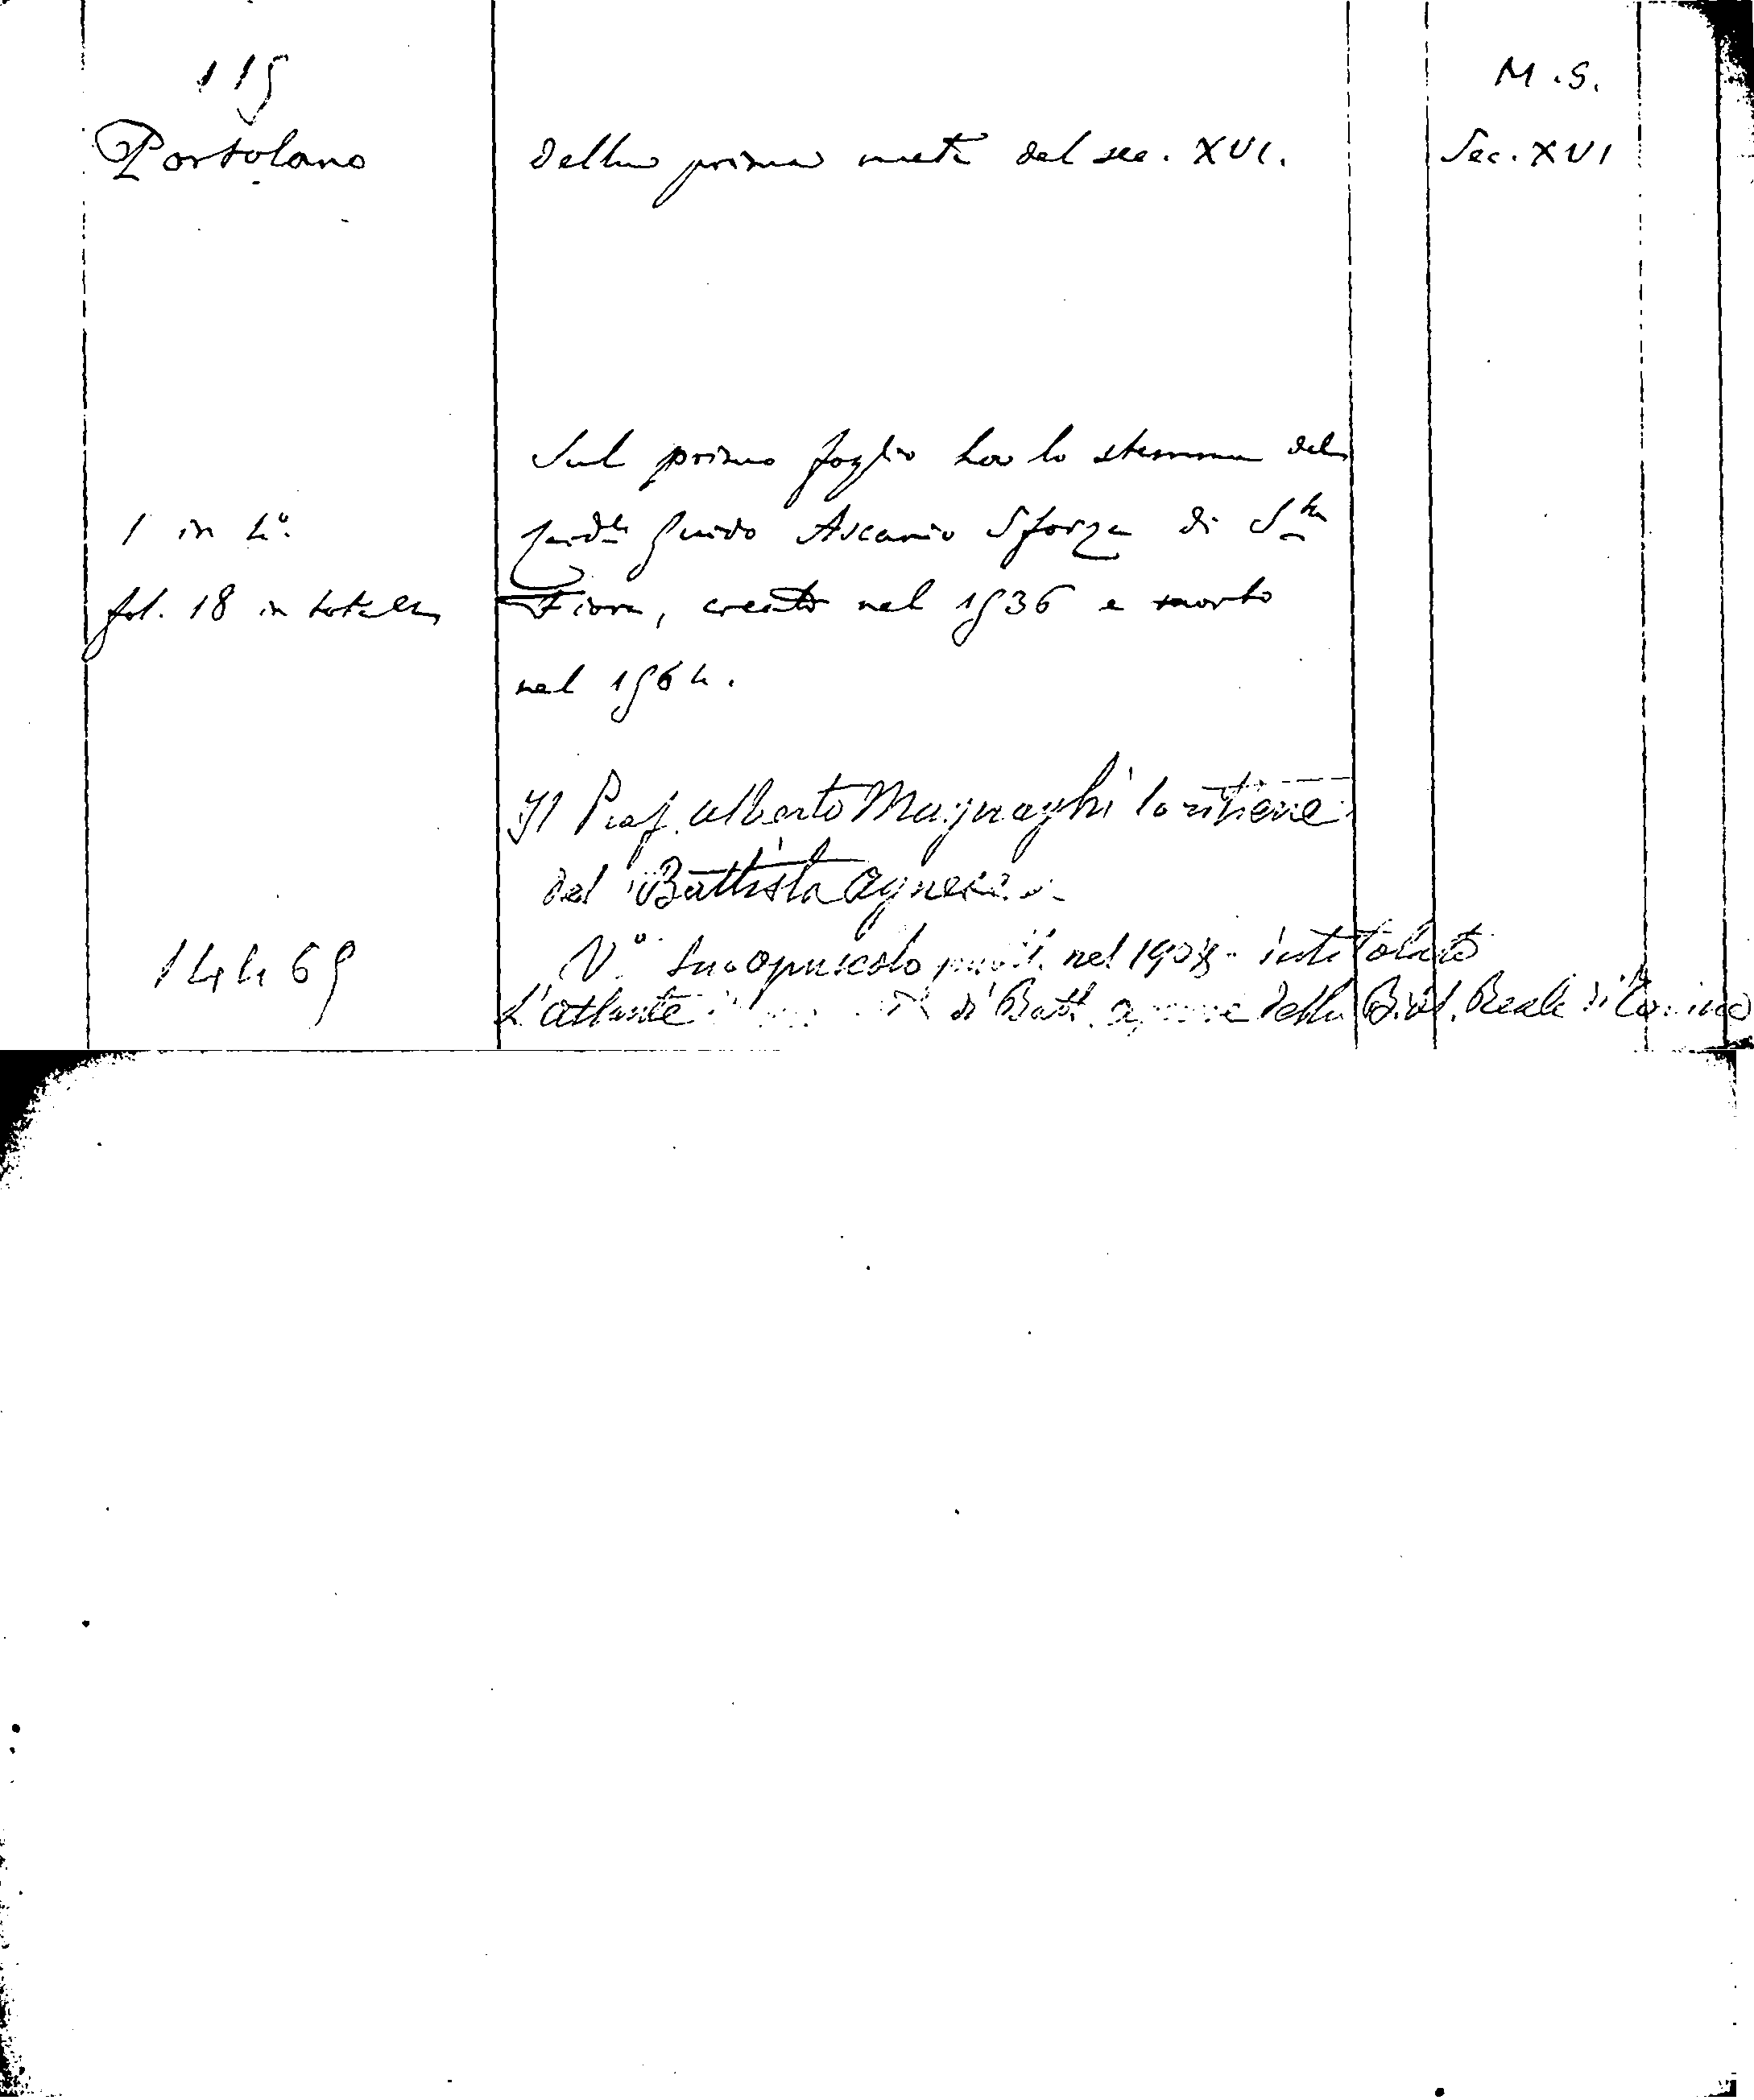 115
M.S.
Portolano
della prima metà del sec. XVI.
Sec. XVI
Sul primo foglio ha lo stemma del
1 in 4°.
Guido Ascanio Sforza di Sta
fol. 18 in totale
Fiora, creato nel 1536 e morto
nel 1564.
Il Prof. Alberto Magnaghi lo ritiene
del Battista Agnese
14469
V° suo opuscolo nel intitolato
L'atlante di Batt. Agnese della Bibl. Reale di Torino